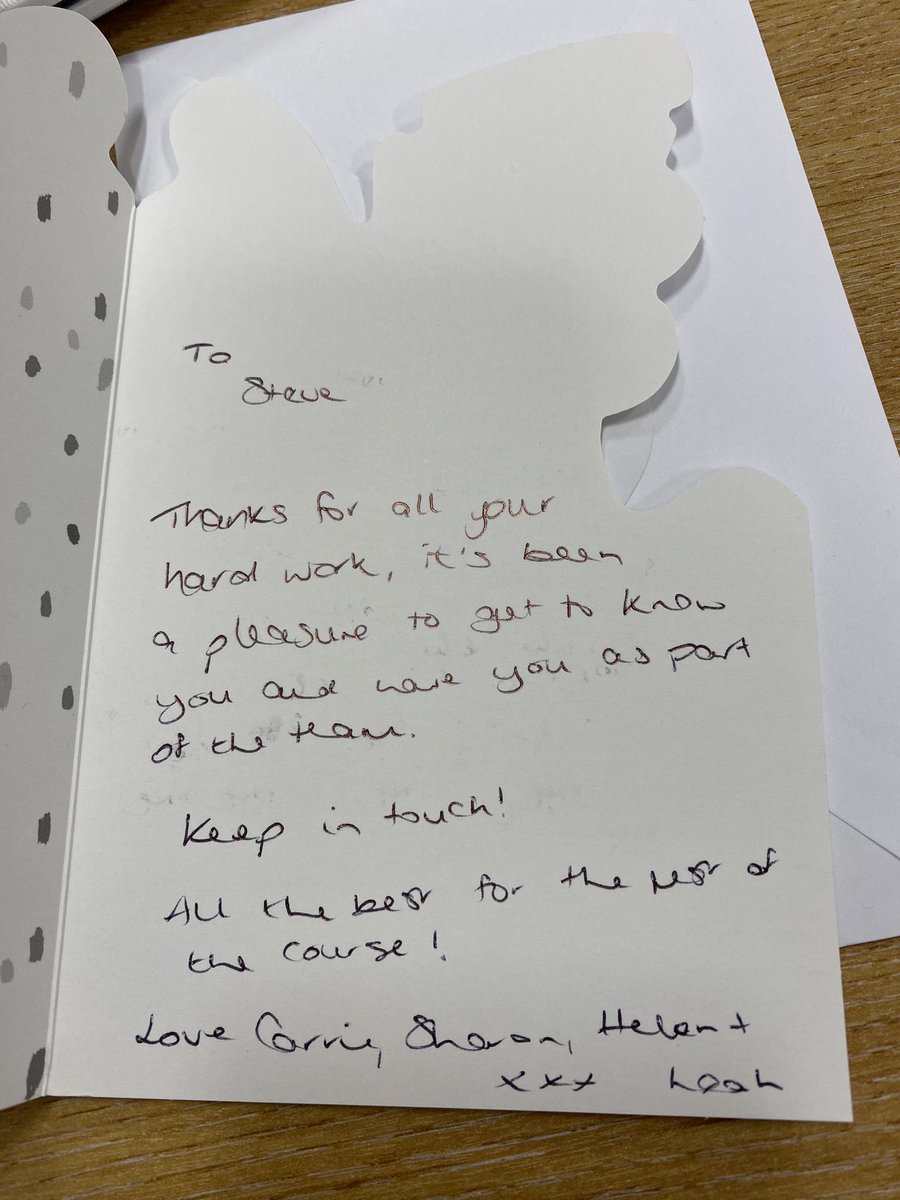 To
Steve
Thanks for all your
hard work, it's been
a pleasure to get to know
you and have you as part
of the team.
Keep in touch!
All the best for the rest of
the course!
Love Carrie, Sharon, Helen +
xxx Leah